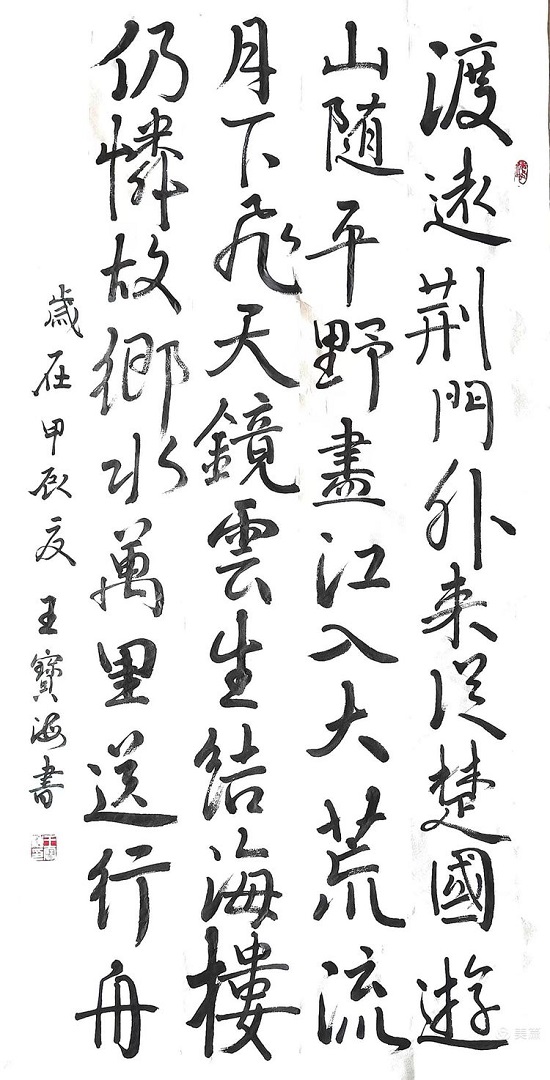 渡遠荆門外来従楚國遊
山随平野盡江入大荒流
月下飛天鏡雲生結海樓
仍憐故鄉水萬里送行舟
歲在甲辰夏王寶海書
美篇